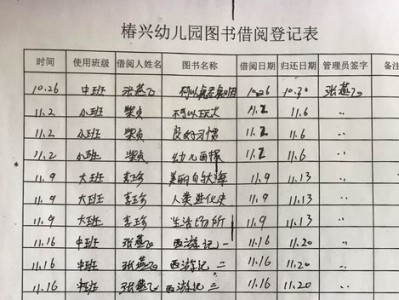 椿兴幼儿园图书借阅登记表
时间 使用班级 借阅人姓名 图书名称 借阅日期 归还日期 管理员签字 备
10.26 中班 张燕飞 10.26 10.30 张燕飞
11.2 小班 11.2 11.6 〃
11.2 小班 良好习惯 11.2 11.6 〃
11.2 小班 幼儿画报 11.2 11.6 〃
11.9 大班 李珍 11.9 11.13 〃
11.9 大班 李珍 人类进化史 11.9 11.13 〃
11.9 大班 李珍 生活场所 11.9 11.13 〃
11.16 中班 张燕飞 西游记一 11.16 11.20 〃
11.16 中班 张燕飞 西游记二 11.16 11.20 〃
11.16 中班 张燕飞 西游记三 11.16 11.20 〃